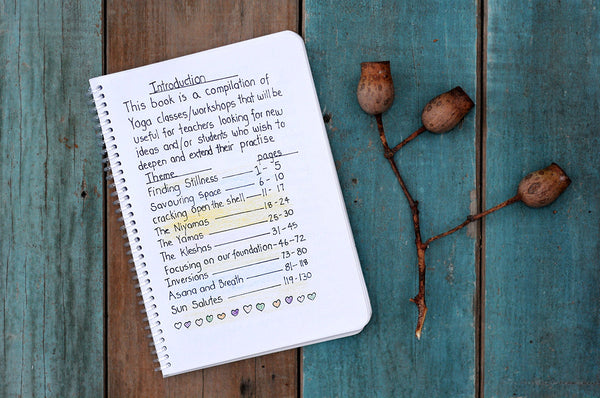 Introduction
This book is a compilation of
Yoga classes/workshops that will be
useful for teachers looking for new
ideas and/or students who wish to
deepen and extend their practise
Theme pages
Finding Stillness 1 - 5
Savouring Space 6 - 10
cracking open the shell 11 - 17
The Niyamas 18 - 24
The Yamas 25 - 30
The Kleshas 31 - 45
Focusing on our foundation - 46 - 72
Inversions 73 - 80
Asana and Breath 81 - 118
Sun Salutes 119 - 130